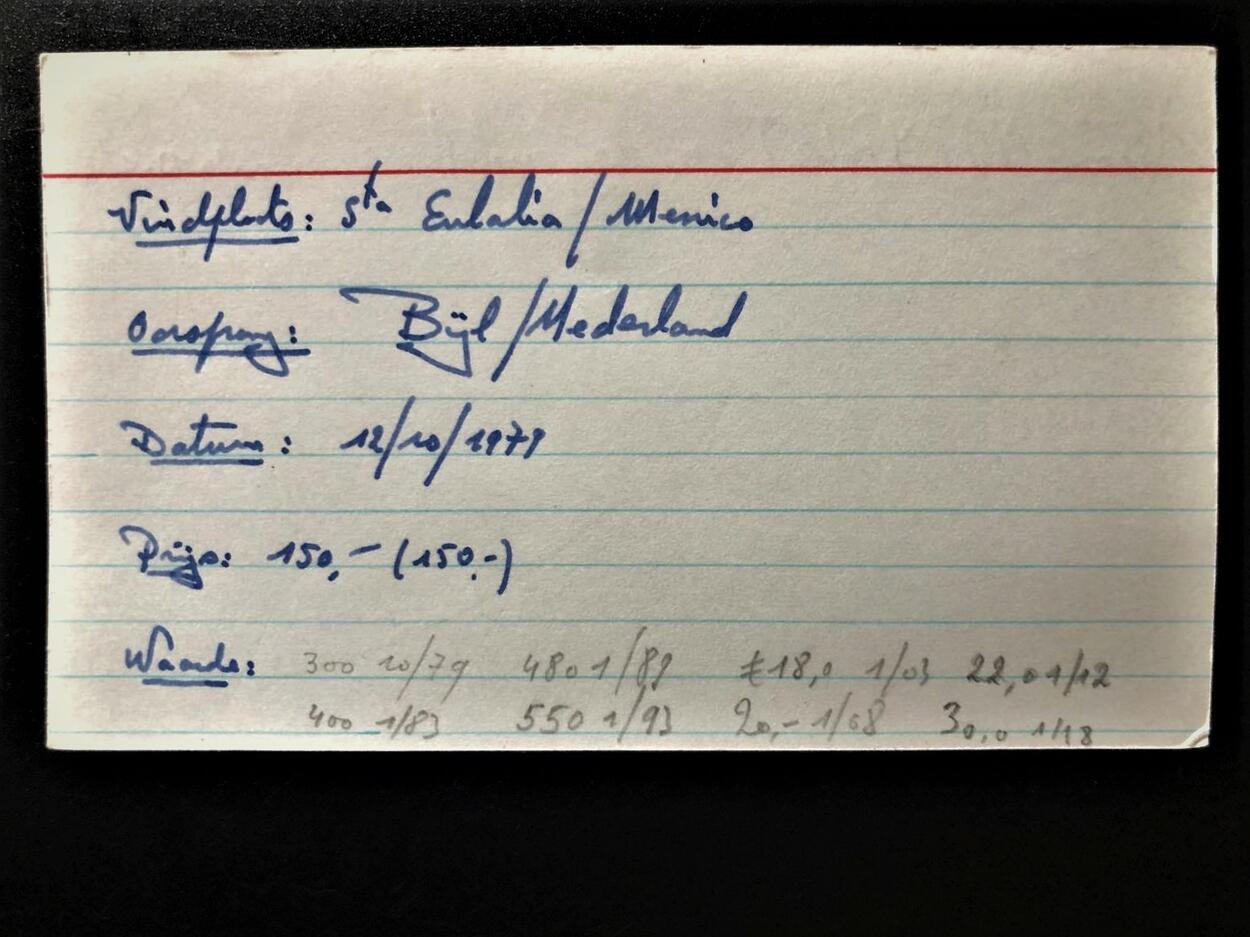 Vindplaats: Sta Eulalia / Mexico
Oorsprong: Bijl / Nederland
Datum: 12/10/1979
Prijs: 150,- (150,-)
Waarde: 300 10/79 480 1/89 €18,0 1/03 22,0 1/12
400 1/83 550 1/93 20,- 1/08 30,0 1/18